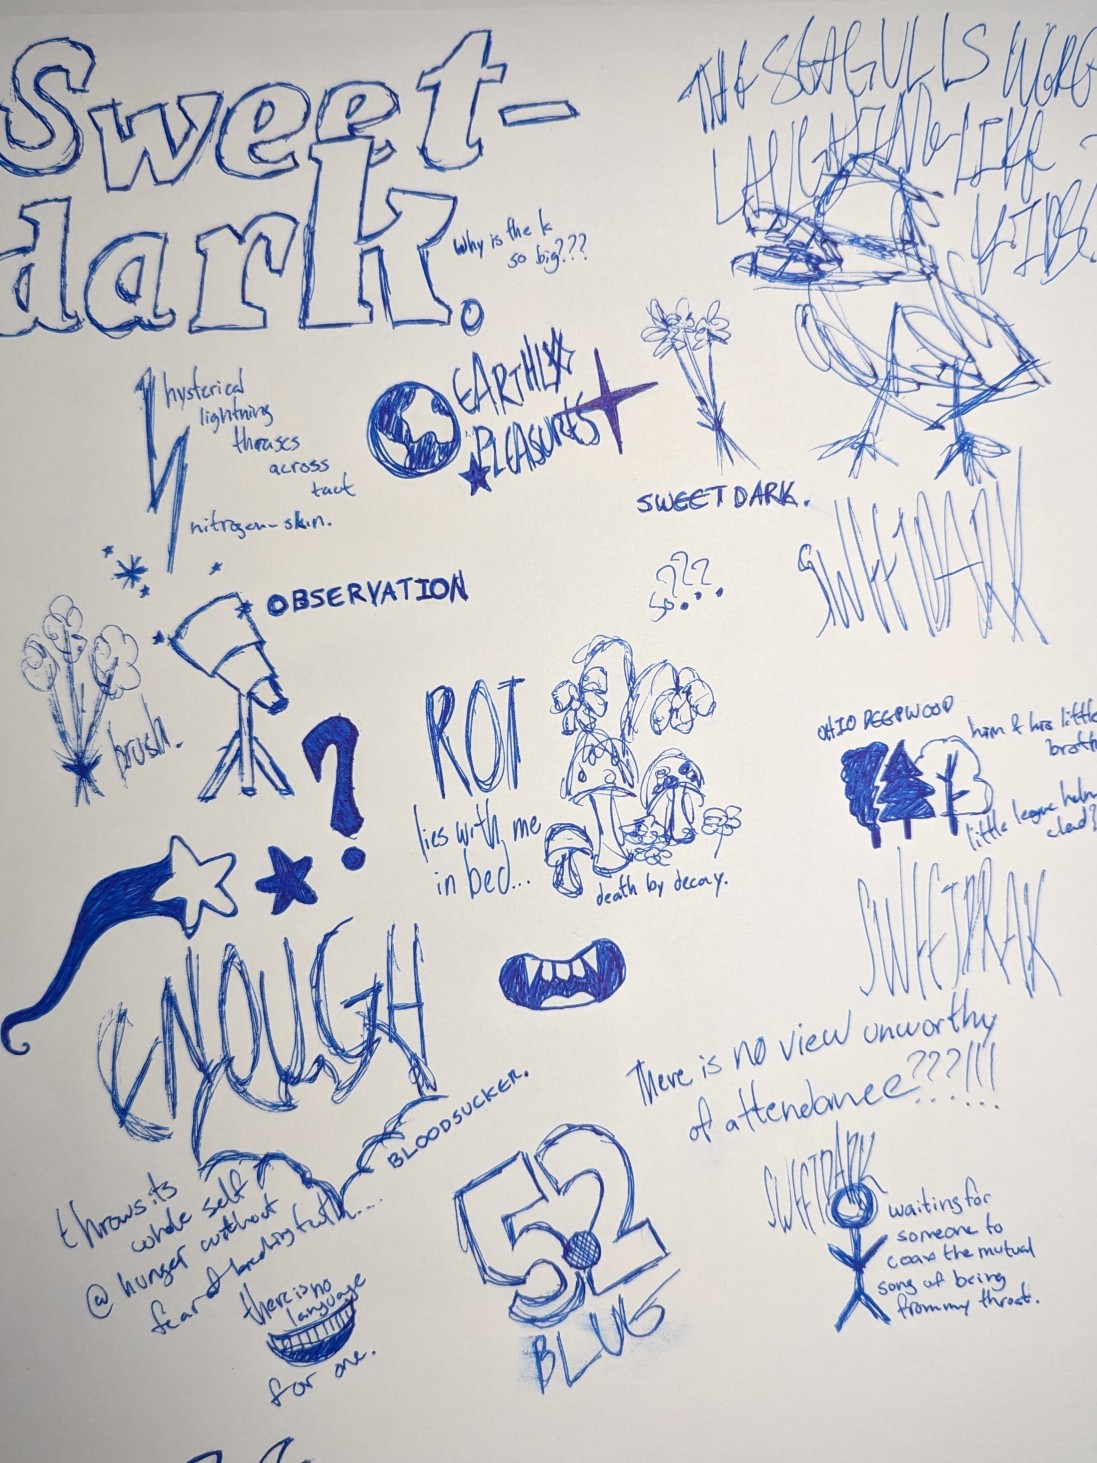 Sweet-
dark.
why is the k
so big???
THE SEAGULLS WERE
LAUGHING LIKE
KIDS
hysterical
lightning
thrases
across
taut
nitrogen-skin.
EARTHLY
PLEASURES
SWEET DARK.
SWEETDARK
OBSERVATION
so???
brush.
ROT
lies with me
in bed...
death by decay.
OHIO DEEPWOOD
him & his little
broth
little league helm
clad?
SWEETDRAK
ENOUGH
BLOODSUCKER.
There is no view unworthy
of attendance???!!!
throws its
whole self
@ hunger without
fear of breaking teeth...
there is no
language
for one.
52
BLUE
SWEETDARK
waiting for
someone to
coax the mutual
song of being
from my throat.